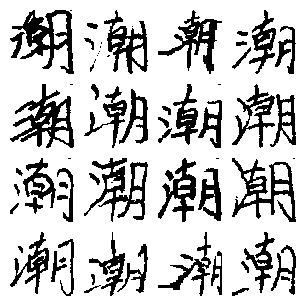 潮潮潮潮
潮潮潮潮
潮潮潮潮
潮潮潮潮